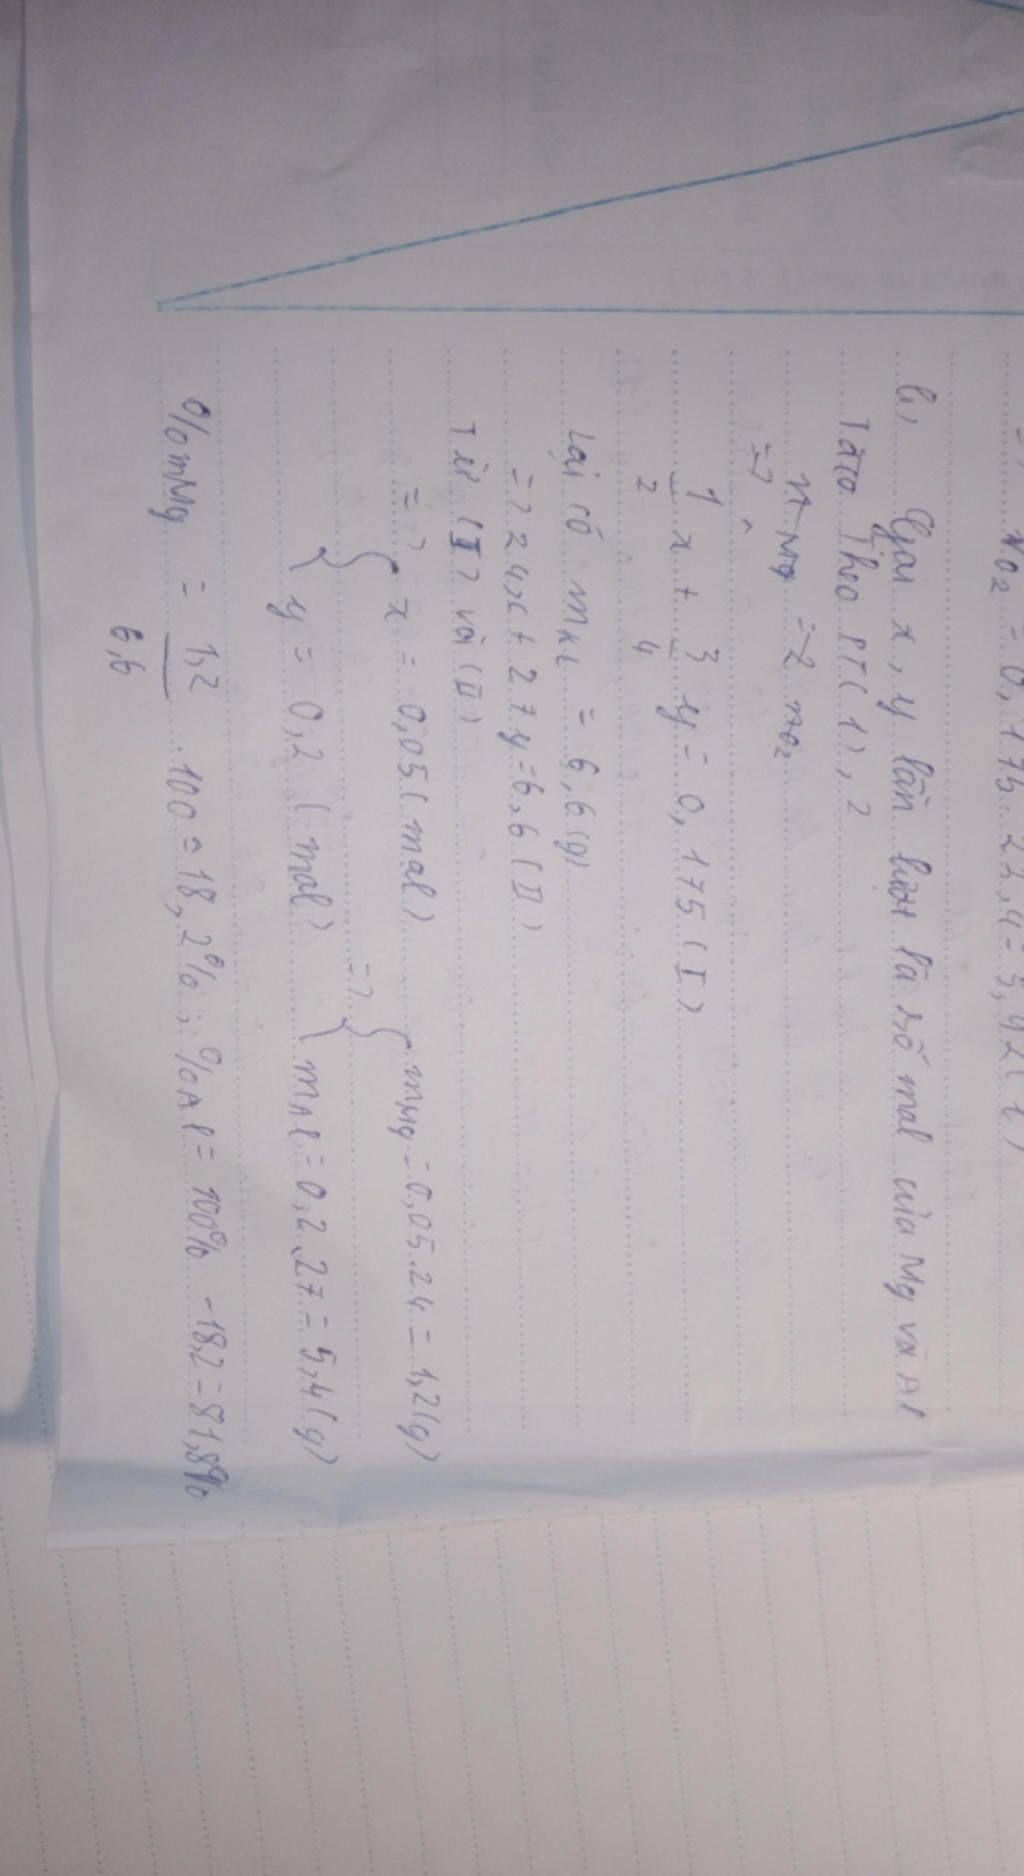 NO₂ = 0,175.22,4 = 3,92(l)
b, Gọi x, y lần lượt là số mol của Mg và Al
Theo PT(1), 2
n Mg = 2 nO₂
=>
1/2 x + 3/4 y = 0,175 (I)
Lại có mKL = 6,6(g)
=> 24x + 27y = 6,6 (II)
Từ (I) và (II)
=> { x = 0,05(mol) => { mMg = 0,05.24 = 1,2(g)
{ y = 0,2 (mol) { mAl = 0,2.27 = 5,4(g)
%mMg = 1,2/6,6 .100 = 18,2% ; %Al = 100% - 18,2 = 81,8%